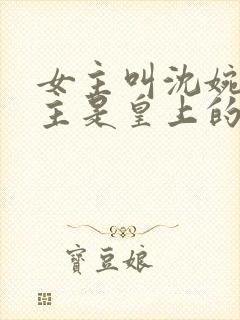 女主叫沈婉
主是皇上的
寶豆娘